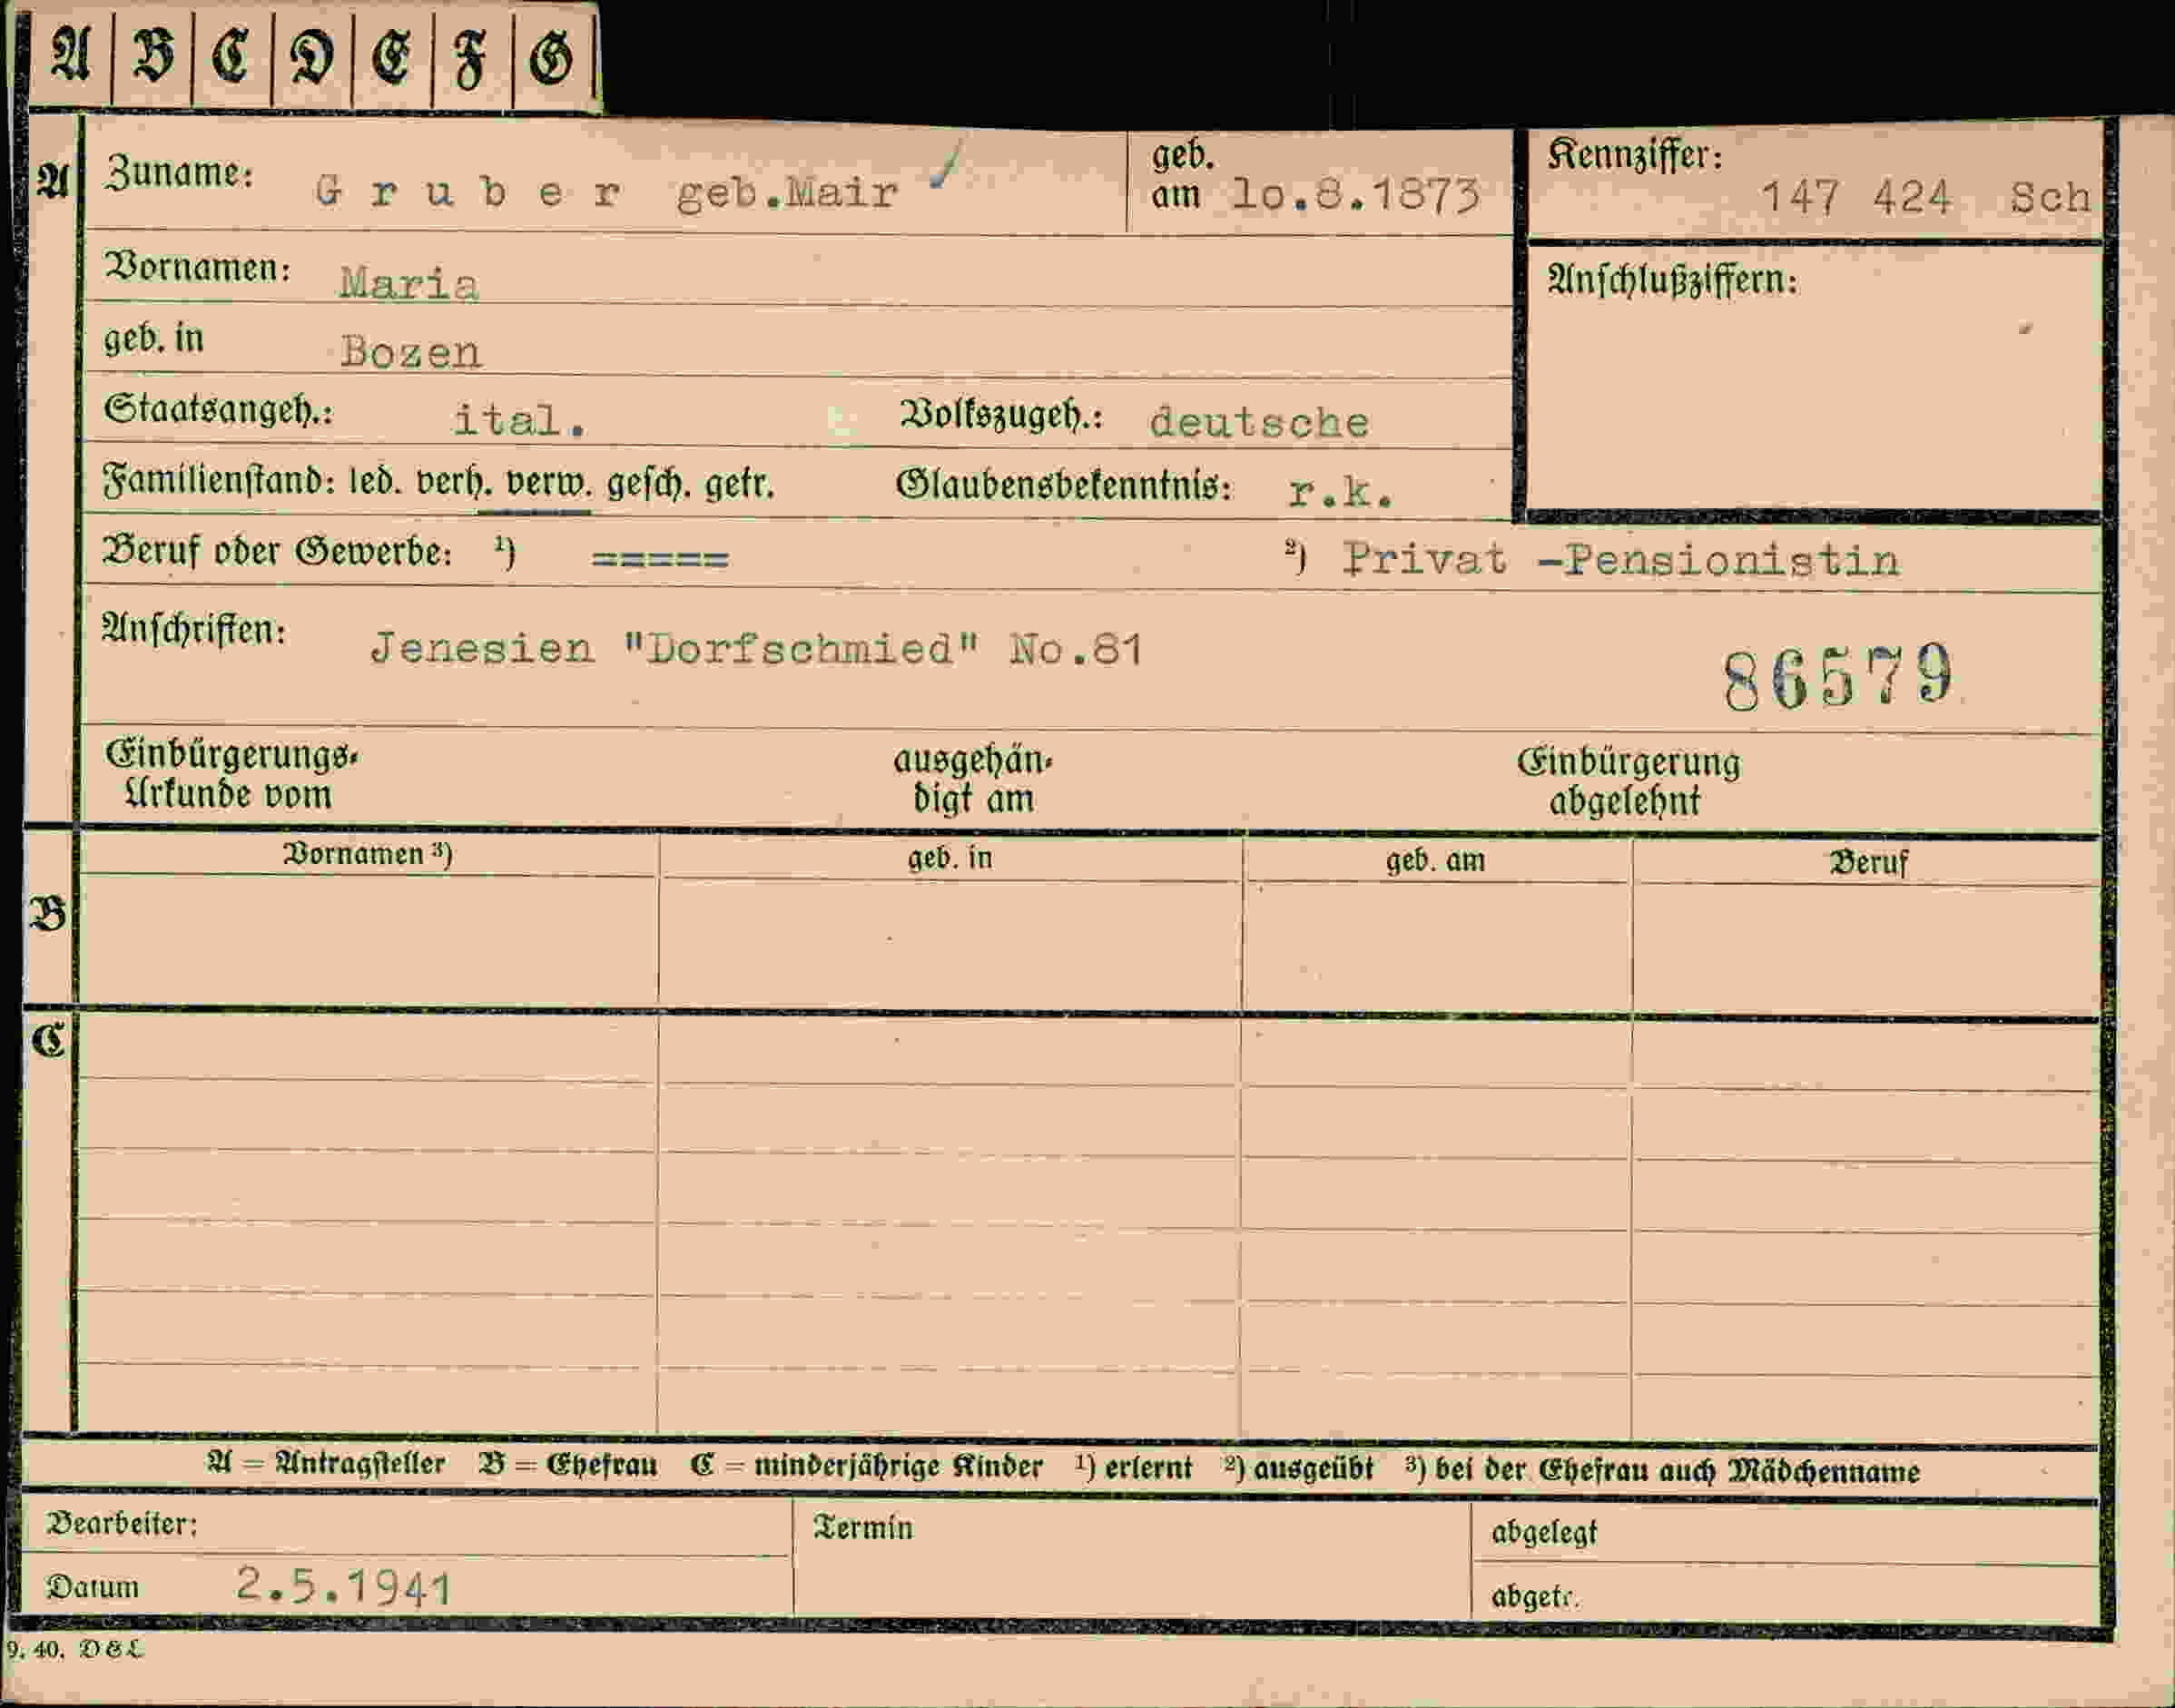 A B C D E F G
A Zuname: Gruber geb.Mair geb. am lo.8.1873 Kennziffer: 147 424 Sch
Vornamen: Maria
Anschlußziffern:
geb. in Bozen
Staatsangeh.: ital. Volkszugeh.: deutsche
Familienstand: led. verh. verw. gesch. getr. Glaubensbekenntnis: r.k.
Beruf oder Gewerbe: ¹) ===== ²) Privat -Pensionistin
Anschriften: Jenesien "Dorfschmied" No.81
86579
Einbürgerungs-Urkunde vom ausgehän-digt am Einbürgerung abgelehnt
Vornamen ³) geb. in geb. am Beruf
B
C
A = Antragsteller B = Ehefrau C = minderjährige Kinder ¹) erlernt ²) ausgeübt ³) bei der Ehefrau auch Mädchenname
Bearbeiter: Termin abgelegt
Datum 2.5.1941 abgetr.
9. 40. D&L